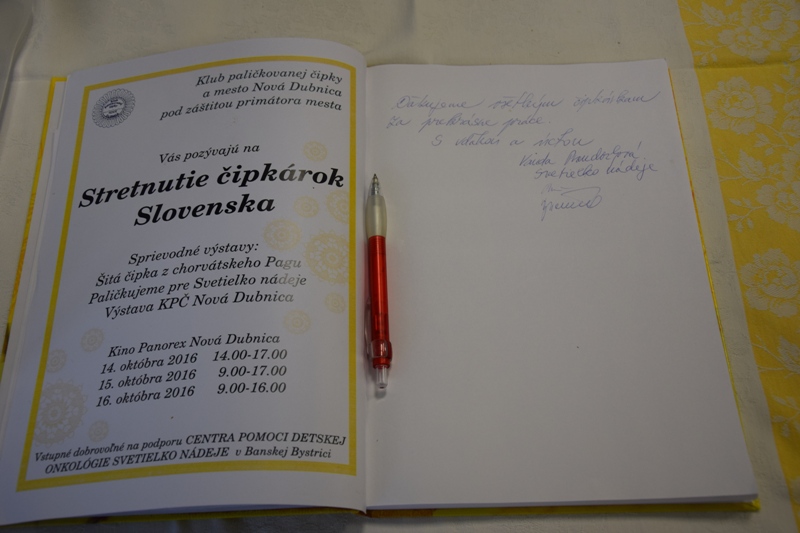 Klub paličkovanej čipky
a mesto Nová Dubnica
pod záštitou primátora mesta
Vás pozývajú na
Stretnutie čipkárok
Slovenska
Sprievodné výstavy:
Šitá čipka z chorvátskeho Pagu
Paličkujeme pre Svetielko nádeje
Výstava KPČ Nová Dubnica
Kino Panorex Nová Dubnica
14. októbra 2016 14.00-17.00
15. októbra 2016 9.00-17.00
16. októbra 2016 9.00-16.00
Vstupné dobrovoľné na podporu CENTRA POMOCI DETSKEJ
ONKOLÓGIE SVETIELKO NÁDEJE v Banskej Bystrici
Ďakujeme všetkým
za práce.
S a
Svetielko nádeje